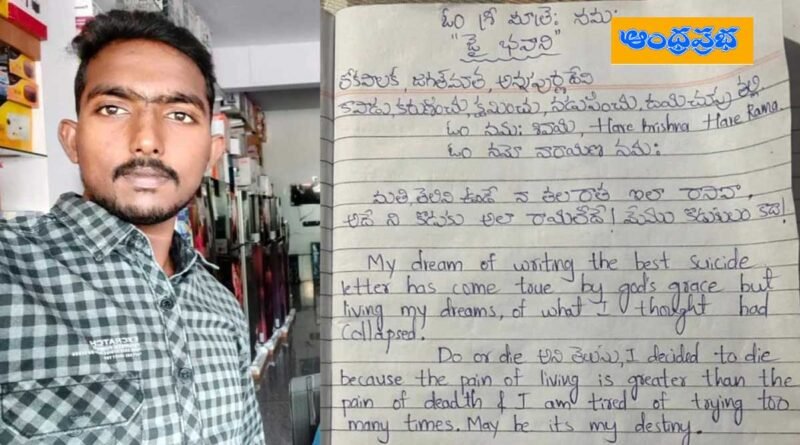 ఓం శ్రీ మాత్రే నమః
ఆంధ్రప్రభ
"జై భవాని"
జగత్‌మాత, అన్నపూర్ణదేవి
కాపాడు, కరుణించు, క్షమించు, నడుపించు,
ఓం నమః శివాయ, Hare krishna Hare Rama
ఓం నమో నారాయణ నమః
నా తల రాత ఇలా రాసినా,
అదే నీ కొడుకు అలా
My dream of writing the best suicide
letter has come toue by gods grace but
living my dreams, of what I thought had
collapsed.
Do or die అని తెలుసు, I decided to die
because the pain of living is greater than the
pain of deadth & I am tired of trying too
many times. May be its my destiny.
EXCRATCH